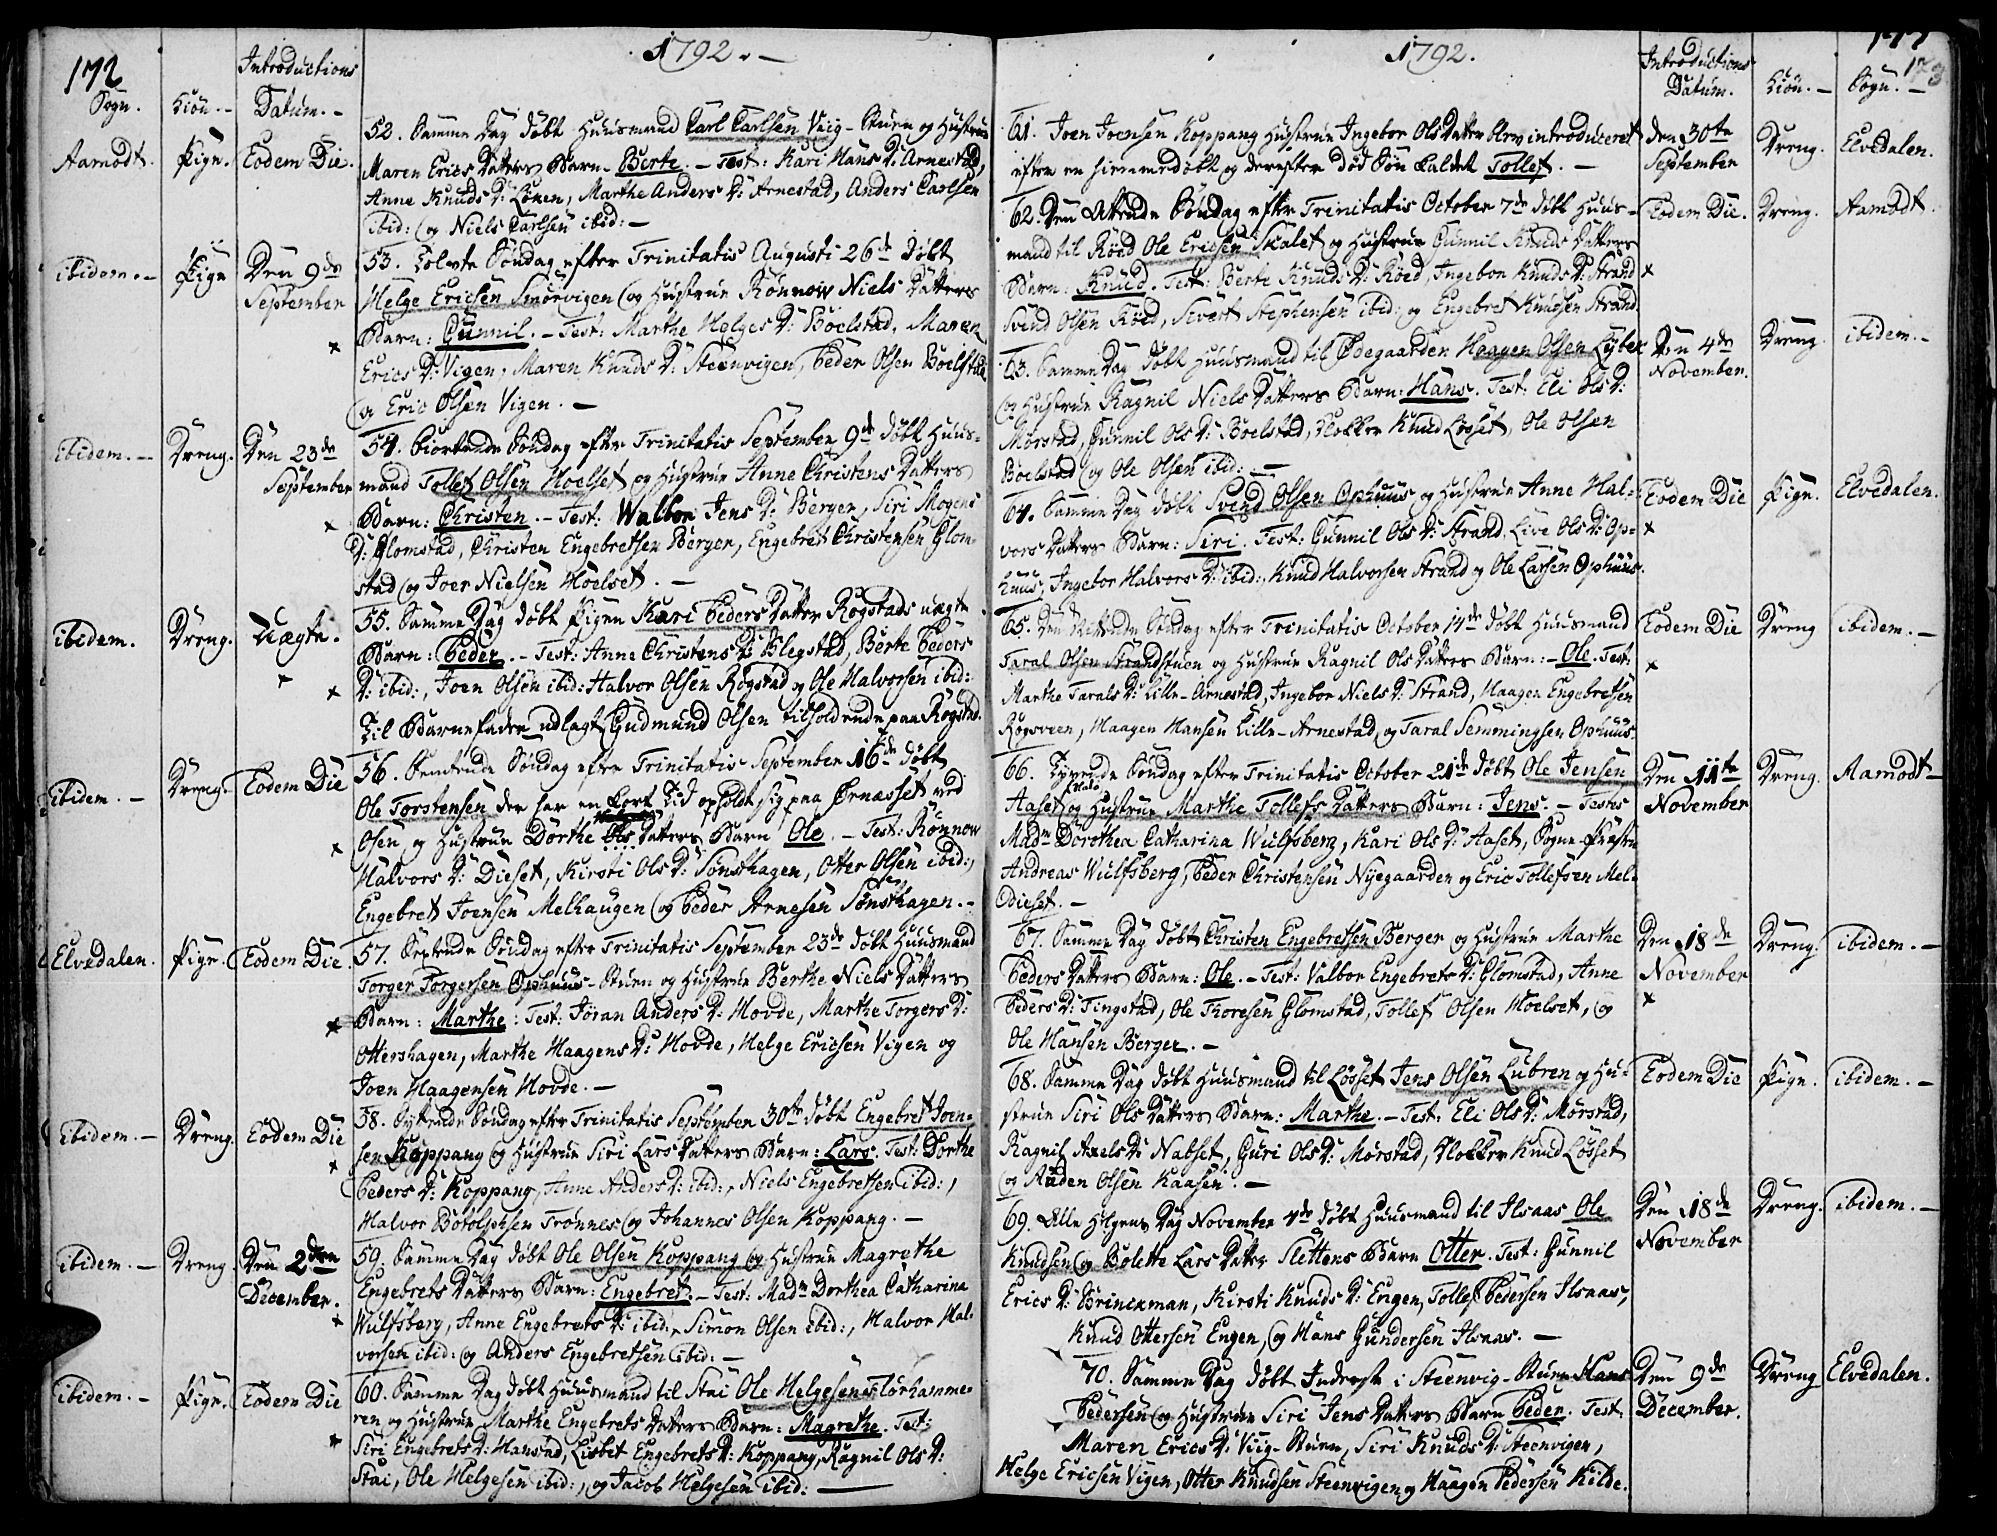 172
1792. -
Sogn. Kiön. - Introductions Datum. -
Aamodt. Pige. Eodem Die.
52. Samme Dag døbt Huusmand Carl Carlsen Viig-Stuen og Hustrue
Maren Erics Datters Barn: Berte. - Test: Kari Hans D: Arnestad,
Anne Knuds D: Lönen, Marthe Anders D: Arnestad, Anders Carlsen
ibid: og Niels Carlsen ibid: -
ibidem. - Pige Den 9de September
53. Tolvte Söndag efter Trinitatis Augusti 26de døbt
Helge Ericsen Smörvigen og Hustrue Rönnow Niels Datters
Barn: Gunnil. - Test: Marthe Helges D: Boelstad, Maren
Erics D: Vigen, Maren Knuds D: Steenvigen, Peder Olsen Boelstad
og Eric Olsen Vigen. -
ibidem. - Dreng. Den 23de September
54. Fiortende Söndag efter Trinitatis September 9de døbt Huus-
mand Tollef Olsen Hoelset og Hustrue Anne Christens Datters
Barn: Christen. - Test: Walbor Jens D: Berger, Siri Mogens
D: Glomstad, Christen Engebretsen Berger, Engebret Christensen Glom-
stad og Joer Nielsen Hoelset. -
ibidem. Dreng. Uægte.
55. Samme Dag døbt Pigen Kari Peders Datter Rogstads uægte
Barn: Peder. - Test: Anne Christens D: Blegstad, Berte Peders
D: ibid:, Joen Olsen ibid: Halvor Olsen Rogstad og Ole Halvorsen ibid:
Til Barnefader udlagt Gudmund Olsen tilholdende paa Rogstad.
ibidem. - Dreng. Eodem Die
56. Femtende Söndag efter Trinitatis September 16de døbt
Ole Torstensen der har en kort Tid opholdt sig paa Ørnesset ved
Osen og Hustrue Dorthe Datters Barn Ole. - Test: Rönnow
Halvors D: Dieset, Kirsti Ols D: Sönsthagen, Otter Olsen ibid:,
Engebret Joensen Melhaugen og Peder Arnesen Sönsthagen. -
Elvedalen. Pige. Eodem Die.
57. Sextende Söndag efter Trinitatis September 23de døbt Huusmand
Torger Torgersen Ophuus-Stuen og Hustrue Berthe Niels Datters
Barn: Marthe: Test: Jöran Anders D: Hovde, Marthe Torgers D:
Ottershagen, Marthe Haagens D: Hovde, Helge Ericsen Vigen og
Joen Haagensen Hovde. -
ibidem. - Dreng. Eodem Die
58. Syttende Söndag efter Trinitatis September 30te døbt Engebret Joen-
sen Koppang og Hustrue Siri Lars Datters Barn: Lars. Test: Dorthe
Peders D: Koppang, Anne Anders D: ibid:, Niels Engebretsen ibid:,
Halvor Botolphsen Trønnes og Johannes Olsen Koppang. -
ibidem. - Dreng. Den 2den December.
59. Samme Dag døbt Ole Olsen Koppang og Hustrue Magrethe
Engebrets Datters Barn: Engebret. - Test: Madm Dorthea Catharina
Wulfsberg, Anne Engebrets D: ibid:, Simon Olsen ibid:, Halvor Hal-
vorsen ibid: og Anders Engebretsen ibid: -
ibidem. - Pige. Eodem Die
60. Samme Dag døbt Huusmand til Stai Ole Helgesen Storhamme-
ren og Hustrue Marthe Engebrets Datters Barn: Magrethe. Test:
Siri Engebrets D: Hanstad, Lisbet Engebrets D: Koppang, Ragnil Ols D:
Stai, Ole Helgesen ibid:, og Jacob Helgesen ibid: -
1792.
173
Introductions Datum. Kiön. - Sogn. -
61. Joen Joensen Koppang Hustrue Ingebor Ols Datter blev introduceret
efter en hiemmedøbt og derefter død Søn kaldet Tollef. -
den 30te September Dreng. Elvedalen.
62. Den Attende Söndag efter Trinitatis October 7de døbt Huus-
mand til Röed Ole Ericsen Skalet og Hustrue Gunnil Knuds Datters
Barn: Knud. Test: Berte Knuds D: Röed, Ingebor Knuds D: Strand
Svend Olsen Röed, Sivert Stephensen ibid: og Engebret Knudsen Strand.
Eodem Die. Dreng. Aamodt.
63. Samme Dag døbt Huusmand til Ødegaarden Haagen Olsen Lybek
og Hustrue Ragnil Niels Datters Barn: Hans. Test: Eli Ols D:
Mørstad, Gunnil Ols D: Boelstad, Klokker Knud Løsset, Ole Olsen
Boelstad og Ole Olsen ibid: -
Den 4de November. Dreng. ibidem. -
64. Samme Dag døbt Svend Olsen Ophuus og Hustrue Anne Hal-
vors Datters Barn: Siri. Test: Gunnil Ols D: Strand, Live Ols D: Op-
huus, Ingebor Halvors D: ibid:, Knud Halvorsen Strand og Ole Larsen Ophuus.
Eodem Die Pige. Elvedalen.
65. Den Nittende Söndag efter Trinitatis October 14de døbt Huusmand
Taral Olsen Strandstuen og Hustrue Ragnil Ols Datters Barn: - Ole. Test:
Marthe Tarals D: Lille-Arnestad, Ingebor Niels D: Strand, Haagen Engebretsen
Rogsveen, Haagen Hansen Lille-Arnestad, og Taral Semmingsen Ophuus.
Eodem Die Dreng ibidem. -
66. Tyvende Söndag efter Trinitatis October 21de døbt Ole Jensen
Aaset og Hustrue Marthe Tollefs Datters Barn: Jens. - Testes
Madm Dorothea Catharina Wulfsberg, Kari Ols D: Aaset, Sogne-Præsten
Andreas Wulfsberg, Peder Christensen Nyegaarden og Eric Tollefsen Mel-
dieset. -
Den 11te November Dreng. Aamodt -
67. Samme Dag døbt Christen Engebretsen Berger og Hustrue Marthe
Peders Datters Barn: Ole. - Test: Valbor Engebrets D: Glomstad, Anne
Peders D: Tingstad, Ole Thoresen Glomstad, Tollef Olsen Hoelset, og
Ole Hansen Berger. -
Den 18de November Dreng. ibidem. -
68. Samme Dag døbt Huusmand til Løsset Jens Olsen Lubren og Hu-
strue Siri Ols Datters Barn: Marthe. - Test: Eli Ols D: Mørstad,
Ragnil Axels D: Nabset, Guri Ols D: Mørstad, Klokker Knud Løsset
og Auden Olsen Kaasen. -
Eodem Die Pige. ibidem. -
69. Alle Helgens Dag November 4de døbt Huusmand til Ilsaas Ole
Knudsen og Bolette Lars Datter Slettens Barn Otter. Test: Gunnil
Erics D: Brinckman, Kirsti Knuds D: Engen, Tollef Pedersen Ilsaas,
Knud Ottersen Engen, og Hans Gundersen Ilsaas. -
Den 18de November Dreng. ibidem. -
70. Samme Dag døbt Inderst i Steenvig-Stuen Hans
Pedersen og Hustrue Siri Jens Datters Barn Peder. Test.
Maren Erics D: Viig-Stuen, Siri Knuds D: Steenvigen,
Helge Ericsen Vigen, Otter Knudsen Steenvigen og Haagen Pedersen Kilde.
Den 9de December. Dreng Elvedalen.